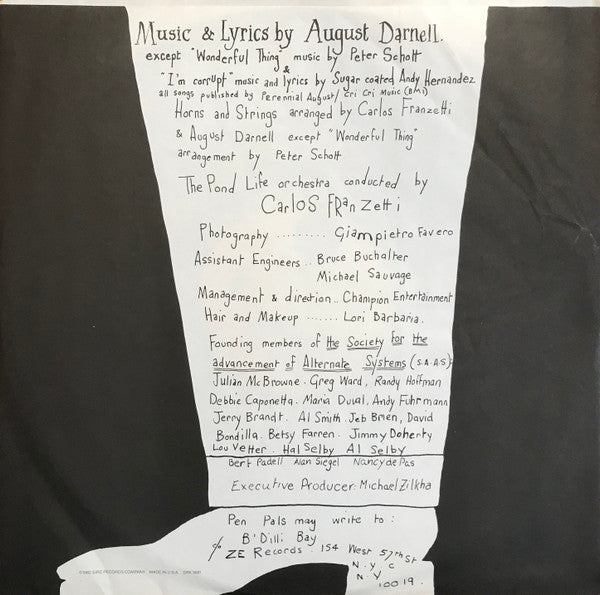 Music & Lyrics by August Darnell.
except "Wonderful Thing" music by Peter Schott
&
"I'm corrupt" music and lyrics by Sugar coated Andy Hernandez
all songs published by Perennial August/ Cri Cri Music (BMI)
Horns and Strings arranged by Carlos Franzetti
& August Darnell except "Wonderful Thing"
arrangement by Peter Schott
The Pond Life orchestra conducted by
CARLOS FRanZetti
Photography ......... Giampietro Favero
Assistant Engineers .. Bruce Buchalter
Michael Sauvage
Management & direction .. Champion Entertainment
Hair and Makeup ....... Lori Barbaria.
Founding members of the Society for the
advancement of Alternate Systems (S.A.A.S)
Julian McBrowne. Greg Ward, Randy Hoffman
Debbie Caponetta. Maria Duval, Andy Fuhrmann
Jerry Brandt. Al Smith. Jeb Brien, David
Bondilla. Betsy Farren. Jimmy Doherty
Lou Vetter. Hal Selby Al Selby
Bert Padell Alan Siegel Nancy de Pas
Executive Producer: Michael Zilkha
Pen Pals may write to :
B'Dilli Bay
c/o ZE Records . 154 West 57th St
N.Y.C
N Y
10019.
© 1982 SIRE RECORDS COMPANY MADE IN U.S.A.